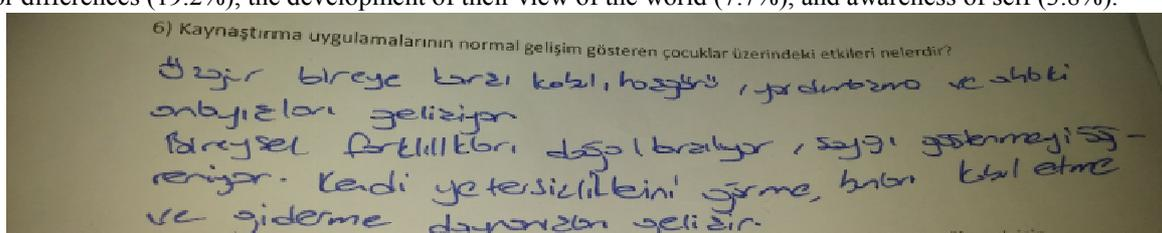 or differences (19.2%), the development of their view of the world (7.7%), and awareness of self (5.8%).
6) Kaynaştırma uygulamalarının normal gelişim gösteren çocuklar üzerindeki etkileri nelerdir?
bireye karşı kabul, hoşgörü, yardımlaşma ve ahlaki
anlayışları gelişiyor
Bireysel farklılıkları doğal karşılıyor, saygı göstermeyi öğ-
reniyor. Kendi yetersizliklerini görme, bunları kabul etme
ve giderme davranışları gelişir.